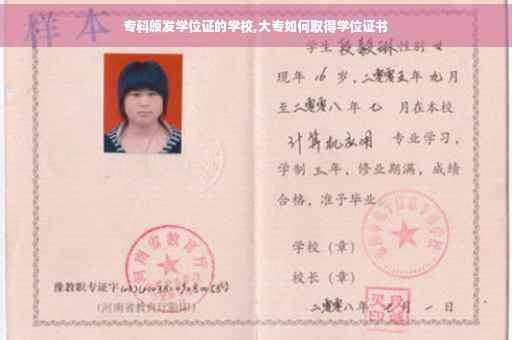 专科颁发学位证的学校,大专如何取得学位证书
样本
学生 段毅琳 性别 女
现年 16 岁，二零零五年 九 月
至二零零八年 七 月在本校
计算机应用 专业学习，
学制 三 年，修业期满，成绩
合格，准予毕业。
学校（章）
校长（章）
二零零八年 七 月 一 日
河南省教育厅
豫教职专证字
（河南省教育厅验印）